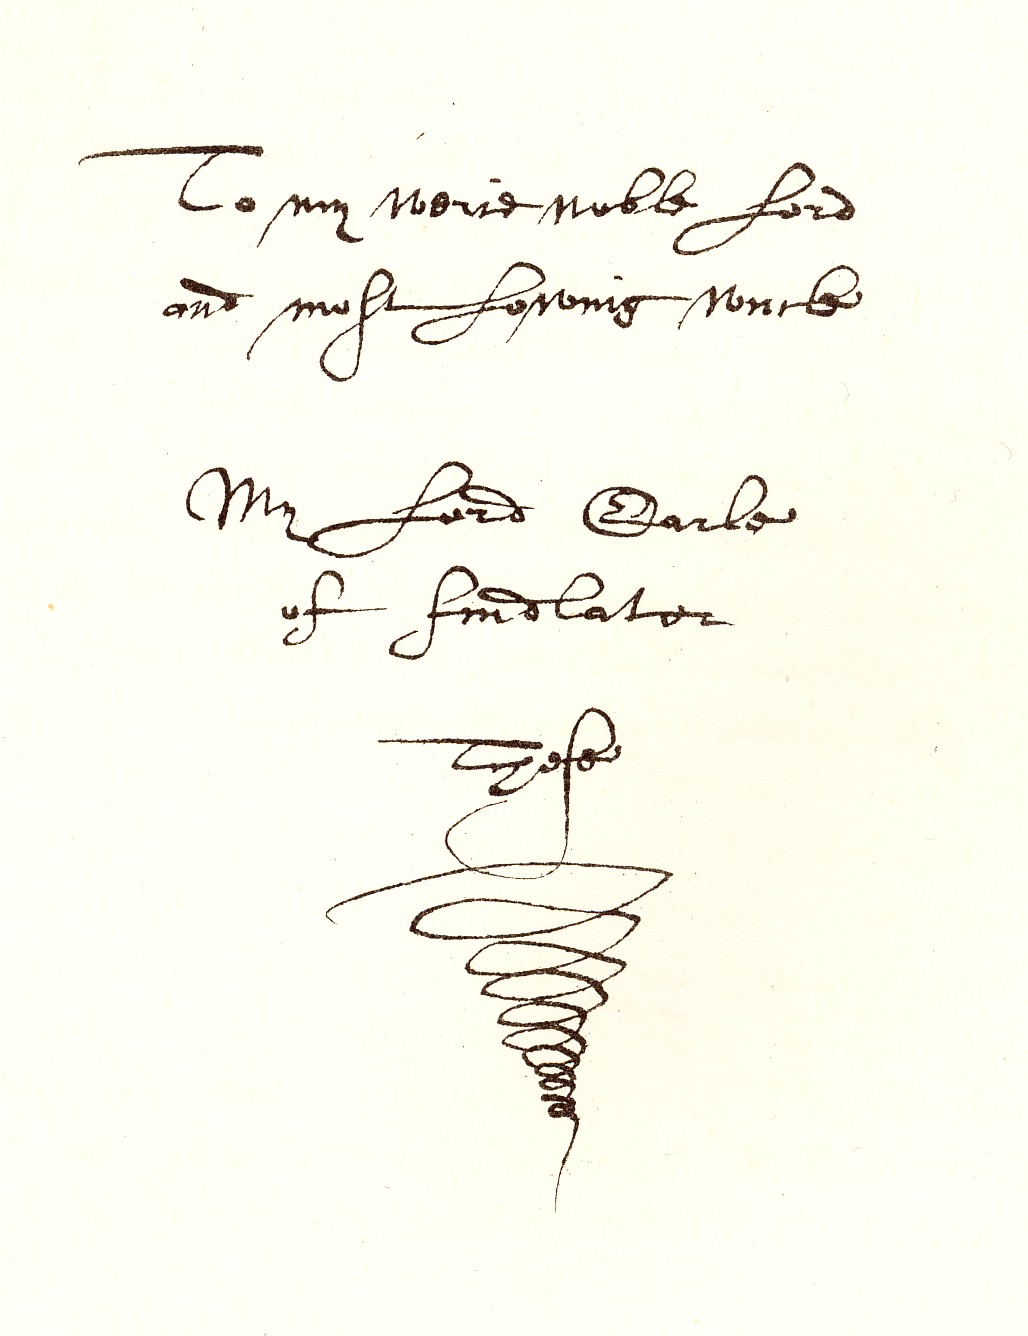 To my werie noble Lord
and most Loweing wncle
My Lord Earle
of findlator
Thése